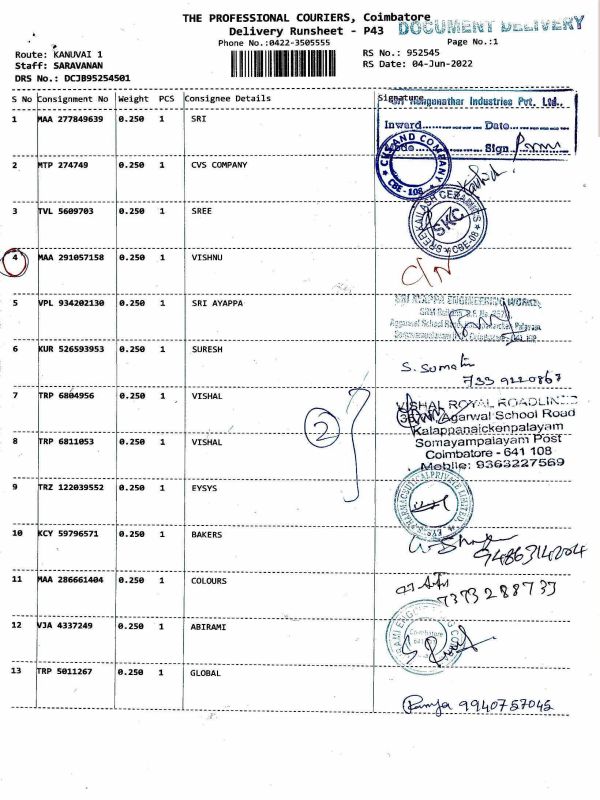 THE PROFESSIONAL COURIERS, Coimbatore
DOCUMENT DELIVERY
Delivery Runsheet - P43
Phone No.:0422-3505555
Page No.:1
Route: KANUVAI 1
RS No.: 952545
Staff: SARAVANAN
RS Date: 04-Jun-2022
DRS No.: DCJB95254501
S No Consignment No Weight PCS Consignee Details Signature
Ranganathar Industries Pvt. Ltd.,
1 MAA 277849639 0.250 1 SRI
Inward Date
Sign
2 MTP 274749 0.250 1 CVS COMPANY
CVS AND COMPANY
CBE-108
3 TVL 5609703 0.250 1 SREE
SREE KAILASH CERAMICS
SKC
CBE-08
4 MAA 291057158 0.250 1 VISHNU
C/N
5 VPL 934202130 0.250 1 SRI AYAPPA
SRI AYAPPA ENGINEERING WORKS
6 KUR 526593953 0.250 1 SURESH
S. Sumathi
733 9220867
7 TRP 6804956 0.250 1 VISHAL
VISHAL ROYAL ROADLINES
Agarwal School Road
Kalappanaickenpalayam
2
8 TRP 6811053 0.250 1 VISHAL
Somayampalayam Post
Coimbatore - 641 108
Mobile: 9363227569
9 TRZ 122039552 0.250 1 EYSYS
PHARMACEUTICAL PRIVATE LIMITED
10 KCY 59796571 0.250 1 BAKERS
9486314204
11 MAA 286661404 0.250 1 COLOURS
7373288733
12 VJA 4337249 0.250 1 ABIRAMI
Coimbatore
13 TRP 5011267 0.250 1 GLOBAL
Ramya 9940757045